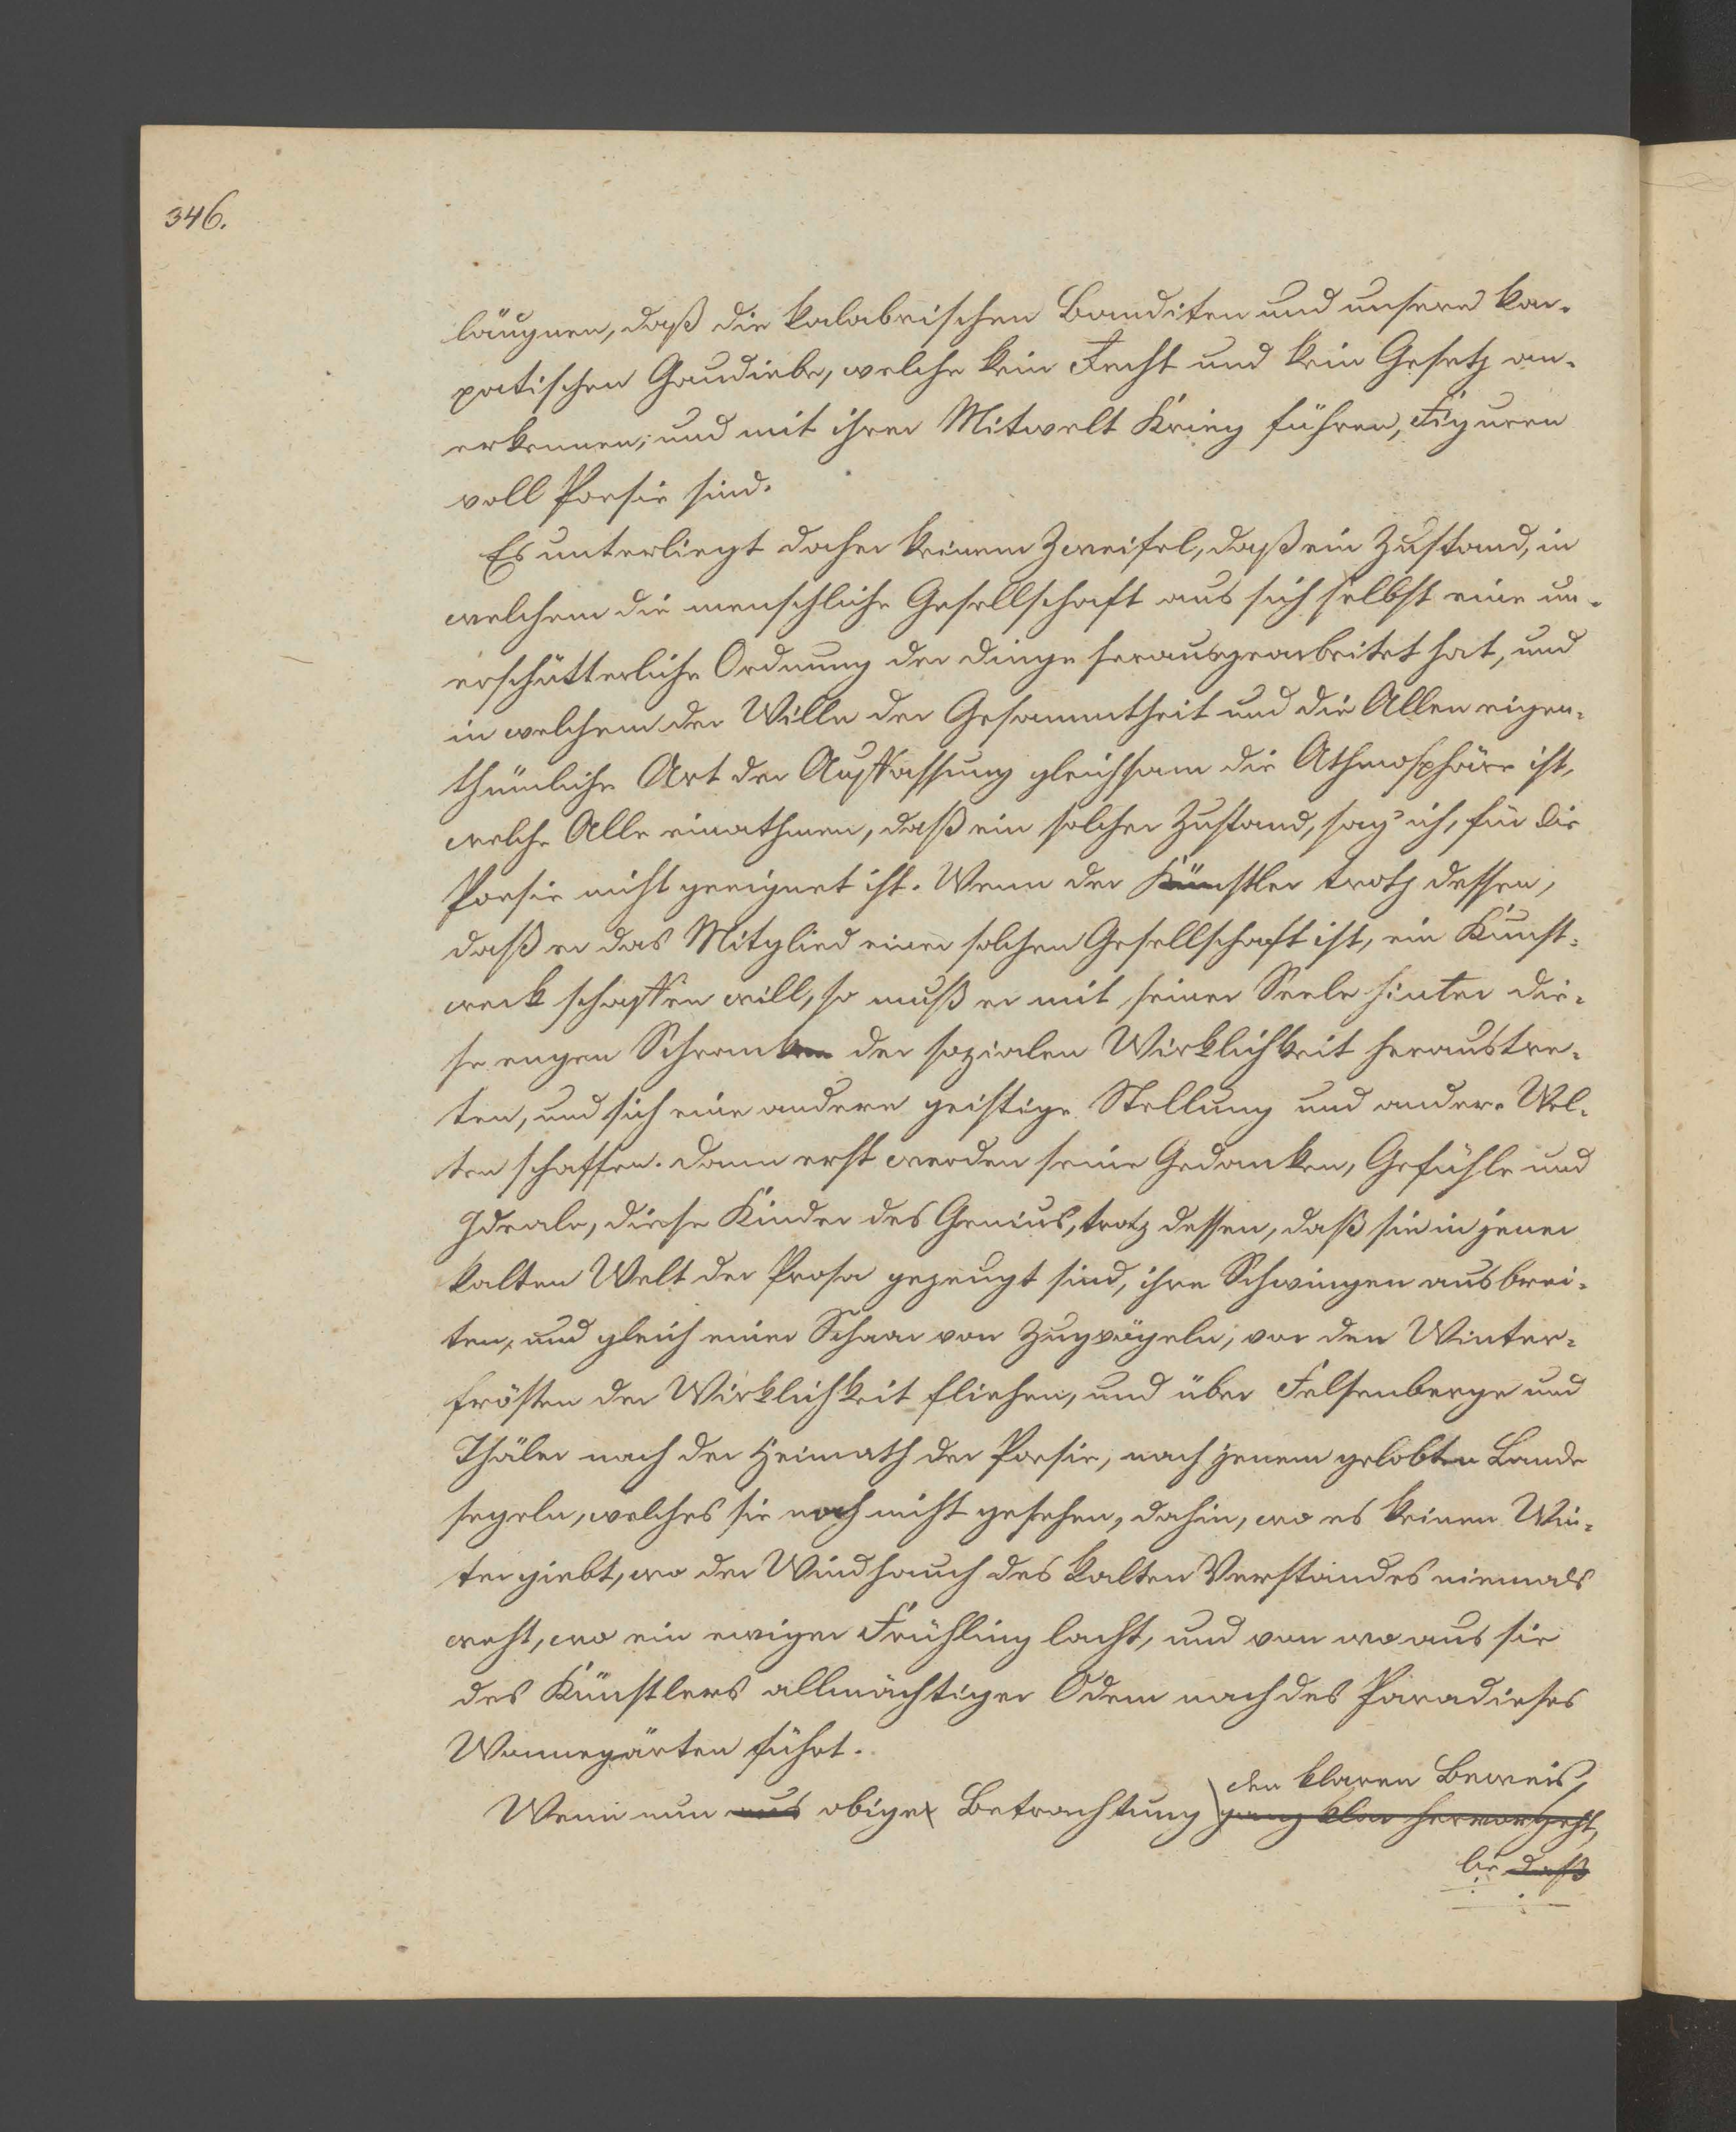 346.
läugnen, daß die kalabrischen Banditen und unsere kar-
patischen Gaudiebe, welche kein Recht und kein Gesetz an-
erkennen, und mit ihrer Mitwelt Krieg führen, Figuren
voll Poesie sind.
Es unterliegt daher keinem Zweifel, daß ein Zustand, in
welchem die menschliche Gesellschaft aus sich selbst eine un-
erschütterliche Ordnung der Dinge herausgearbeitet hat, und
in welchem der Wille der Gesammtheit und die Allen eigen-
thümliche Art der Auffassung gleichsam die Athmosphäre ist,
welche Alle einathmen, daß ein solcher Zustand, sag' ich, für die
Poesie nicht geeignet ist. Wenn der Künstler trotz dessen,
daß er das Mitglied einer solchen Gesellschaft ist, ein Kunst-
werk schaffen will, so muß er mit seiner Seele hinter die-
se engen Schranken der sozialen Wirklichkeit heraustre-
ten, und sich eine andere geistige Stellung und andere Wel-
ten schaffen. Dann erst werden seine Gedanken, Gefühle und
Ideale, diese Kinder des Genius, trotz dessen, daß sie in jener
kalten Welt der Prosa gezeugt sind, ihre Schwingen ausbrei-
ten, und gleich einer Schaar von Zugvögeln, vor den Winter-
frösten der Wirklichkeit fliehen, und über Felsenberge und
Thäler nach der Heimath der Poesie, nach jenem gelobten Lande
segeln, welches sie noch nicht gesehen, dahin, wo es keinen Win-
ter giebt, wo der Windhauch des kalten Verstandes niemals
weht, wo ein ewiger Frühling lacht, und von wo aus sie
des Künstlers allmächtiger Odem nach des Paradieses
Wonnegärten führt.
den klaren Beweis,
Wenn nun aus obiger Betrachtung ganz klar hervorgeht,
lie daß